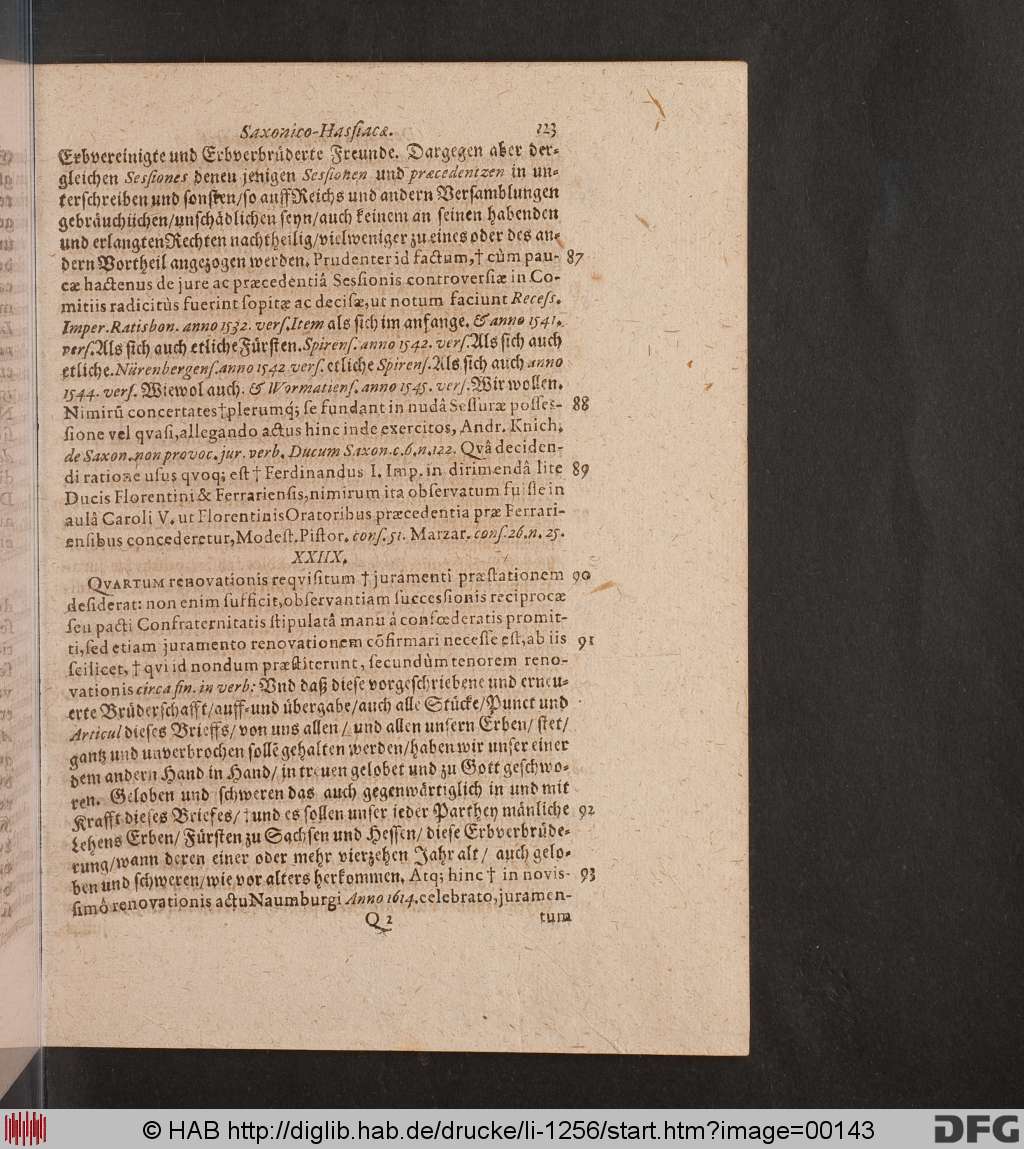 Saxonico-Hassiacæ. 123
Erbvereinigte und Erbverbrüderte Freunde. Dargegen aber der-
gleichen Sessiones denen jenigen Sessionen und præcedentzen in un-
terschreiben und sonsten/so auff Reichs und andern Versamblungen
gebräuchlichen/unschädlichen seyn/auch keinem an seinen habenden
und erlangten Rechten nachtheilig/vielweniger zu eines oder des an-
dern Vortheil angezogen werden. Prudenter id factum,† cùm pau- 87
cæ hactenus de jure ac præcedentiâ Sessionis controversiæ in Co-
mitiis radicitùs fuerint sopitæ ac decisæ,ut notum faciunt Recess.
Imper.Ratisbon. anno 1532. vers.Item als sich im anfange. & anno 1541.
vers.Als sich auch etliche Fürsten. Spirens. anno 1542. vers.Als sich auch
etliche. Nürenbergens.anno 1542 vers. etliche Spirens.Als sich auch anno
1544. vers. Wiewol auch. & Wormatiens. anno 1545. vers. Wir wollen.
Nimirũ concertates†plerumq́; se fundant in nudâ Sessuræ posses- 88
sione vel qvasi,allegando actus hinc inde exercitos, Andr. Knich.
de Saxon.non provoc.jur. verb. Ducum Saxon.c.6.n.122. Qvâ deciden-
di ratione usus qvoq; est † Ferdinandus I. Imp. in dirimendâ lite 89
Ducis Florentini & Ferrariensis,nimirum ita observatum fuisse in
aulâ Caroli V. ut Florentinis Oratoribus præcedentia præ Ferrari-
ensibus concederetur,Modest.Pistor. cons.51. Marzar. cons.26.n. 25.
XXIIX.
QVARTUM renovationis reqvisitum † juramenti præstationem 90
desiderat: non enim sufficit,observantiam successionis reciprocæ
seu pacti Confraternitatis stipulatâ manu à confœderatis promit-
ti,sed etiam juramento renovationem cõfirmari necesse est,ab iis 91
scilicet, † qvi id nondum præstiterunt, secundùm tenorem reno-
vationis circa fin. in verb: Vnd daß diese vorgeschriebene und erneu-
erte Brüderschafft/auff-und übergabe/auch alle Stücke/Punct und
Articul dieses Brieffs/ von uns allen/ und allen unsern Erben/ stet/
gantz und unverbrochen sollẽ gehalten werden/haben wir unser einer
dem andern Hand in Hand/ in treuen gelobet und zu Gott geschwo-
ren. Geloben und schweren das auch gegenwärtiglich in und mit
Krafft dieses Briefes/ †und es sollen unser ieder Parthey mänliche 92
Lehens Erben/ Fürsten zu Sachsen und Hessen/ diese Erbverbrüde-
rung/wann deren einer oder mehr vierzehen Jahr alt/ auch gelo-
ben und schweren/wie vor alters herkommen. Atq; hinc † in novis- 93
simô renovationis actu Naumburgi Anno 1614.celebrato,juramen-
Q 2 tum
© HAB http://diglib.hab.de/drucke/li-1256/start.htm?image=00143 DFG